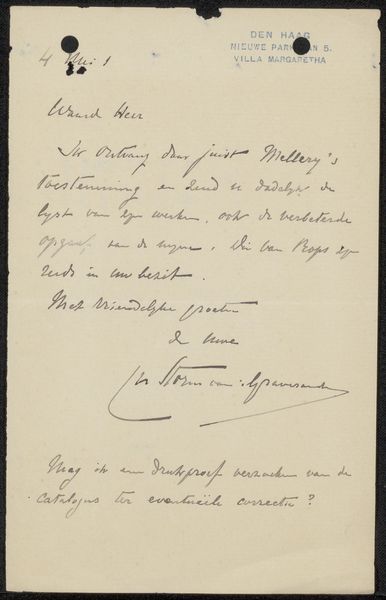 DEN HAAG
NIEUWE PARKLAAN 5.
VILLA MARGARETHA
4 Mei
Waard Heer
Ik ontvang daar juist Mellery's
toestemming en zend u dadelijk de
lyst van zyn werken, ook de verbeterde
opgaaf van de myne. Die van Rops zyn
reeds in uw bezit.
Met vriendelyke groeten
de uwe
Storm van 's Gravesande
Mag ik een drukproef verzoeken van de
catalogus ter eventueële correctie?